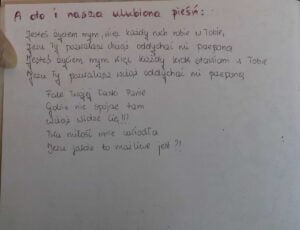 A oto i nasza ulubiona pieśń:
Jesteś życiem mym, więc każdy ruch robię w Tobie,
Jezu Ty pozwalasz wciąż oddychać mi piersią
Jesteś życiem mym więc każdy krok stawiam w Tobie
Jezu Ty pozwalasz wciąż oddychać mi piersią
Fale Twojej Łaski Panie
Gdzie nie spojrzę tam
wciąż widzę Cię!!!
Twa miłość mnie uwiodła
Jezu jakże to możliwe jest?!